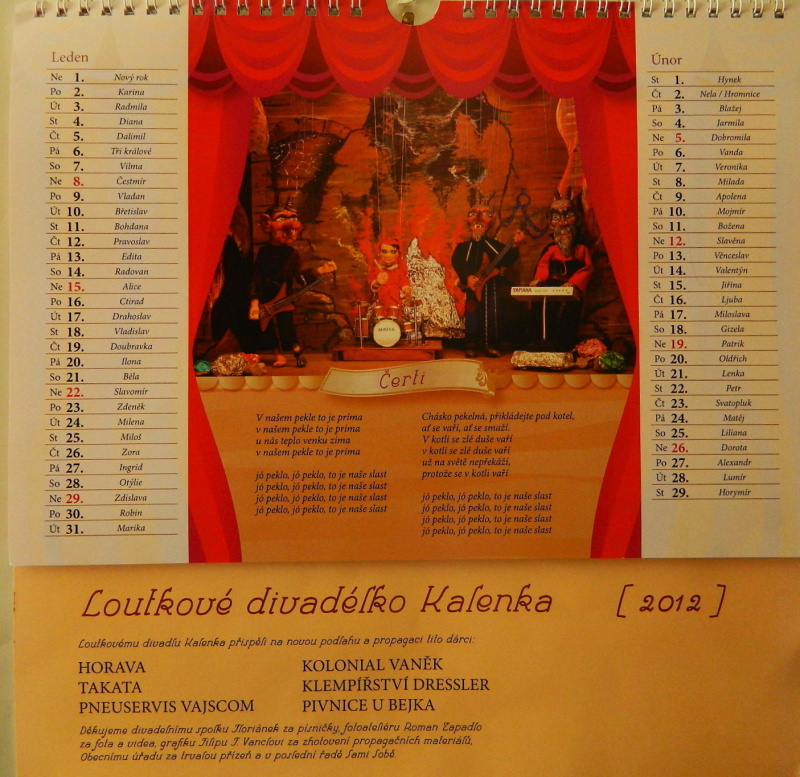 Leden
Ne 1. Nový rok
Po 2. Karina
Út 3. Radmila
St 4. Diana
Čt 5. Dalimil
Pá 6. Tři králové
So 7. Vilma
Ne 8. Čestmír
Po 9. Vladan
Út 10. Břetislav
St 11. Bohdana
Čt 12. Pravoslav
Pá 13. Edita
So 14. Radovan
Ne 15. Alice
Po 16. Ctirad
Út 17. Drahoslav
St 18. Vladislav
Čt 19. Doubravka
Pá 20. Ilona
So 21. Běla
Ne 22. Slavomír
Po 23. Zdeněk
Út 24. Milena
St 25. Miloš
Čt 26. Zora
Pá 27. Ingrid
So 28. Otýlie
Ne 29. Zdislava
Po 30. Robin
Út 31. Marika
YAMAHA
Čerti
V našem pekle to je prima
v našem pekle to je prima
u nás teplo venku zima
v našem pekle to je prima
jó peklo, jó peklo, to je naše slast
jó peklo, jó peklo, to je naše slast
jó peklo, jó peklo, to je naše slast
jó peklo, jó peklo, to je naše slast
Chásko pekelná, přikládejte pod kotel,
ať se vaří, ať se smaží.
V kotli se zlé duše vaří
v kotli se zlé duše vaří
už na světě nepřekáží,
protože se v kotli vaří
jó peklo, jó peklo, to je naše slast
jó peklo, jó peklo, to je naše slast
jó peklo, jó peklo, to je naše slast
jó peklo, jó peklo, to je naše slast
Únor
St 1. Hynek
Čt 2. Nela / Hromnice
Pá 3. Blažej
So 4. Jarmila
Ne 5. Dobromila
Po 6. Vanda
Út 7. Veronika
St 8. Milada
Čt 9. Apolena
Pá 10. Mojmír
So 11. Božena
Ne 12. Slavěna
Po 13. Věnceslav
Út 14. Valentýn
St 15. Jiřina
Čt 16. Ljuba
Pá 17. Miloslava
So 18. Gizela
Ne 19. Patrik
Po 20. Oldřich
Út 21. Lenka
St 22. Petr
Čt 23. Svatopluk
Pá 24. Matěj
So 25. Liliana
Ne 26. Dorota
Po 27. Alexandr
Út 28. Lumír
St 29. Horymír
Loutkové divadélko Kalenka [2012]
Loutkovému divadlu Kalenka přispěli na novou podlahu a propagaci tito dárci:
HORAVA
TAKATA
PNEUSERVIS VAJSCOM
KOLONIAL VANĚK
KLEMPÍŘSTVÍ DRESSLER
PIVNICE U BEJKA
Děkujeme divadelnímu spolku Floriánek za písničky, fotoateliéru Roman Zapadlo
za fota a videa, grafiku Filipu J. Vančlovi za zhotovení propagačních materiálů,
Obecnímu úřadu za trvalou přízeň a v poslední řadě Sami Sobě.